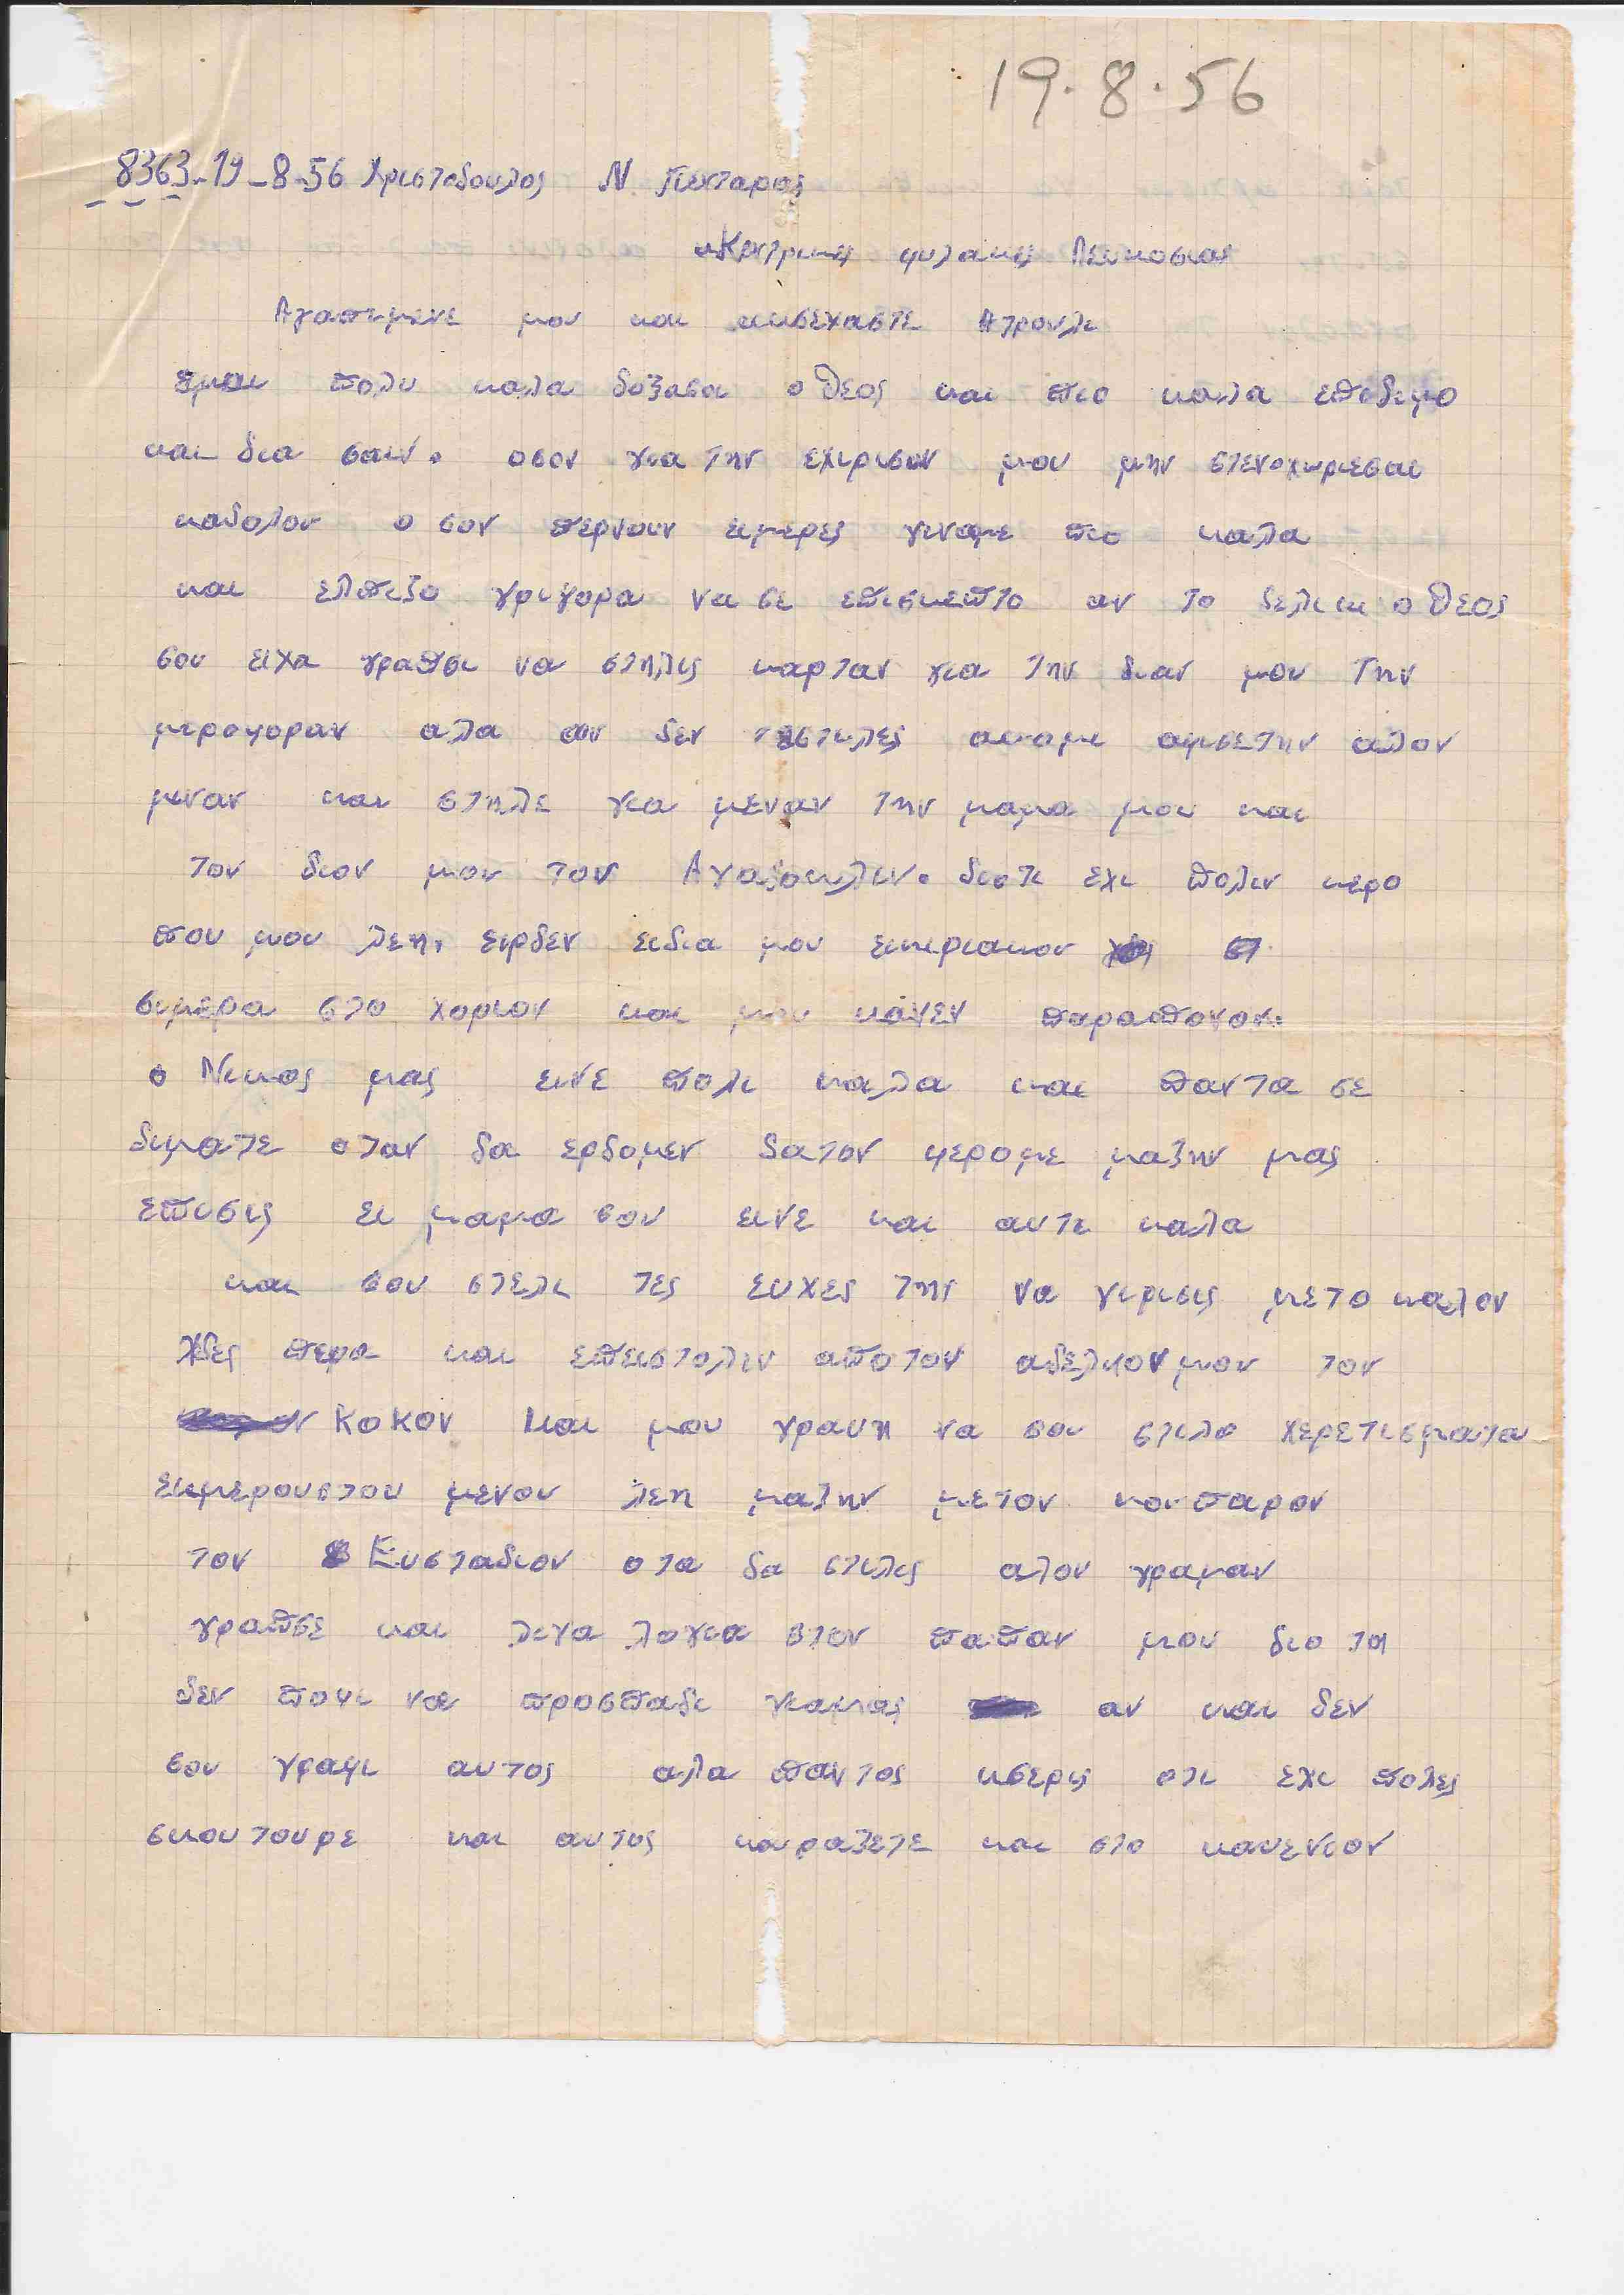 19.8.56
8363-19-8-56 Χριστοδουλος Ν
φυλακης Λευκοσιας
Αγαπιμενε μου και Ατρουλι
πολυ καλα δοξασι ο θεος και πιο καλα επιδιμο
και δια σαιν. οσον για την εχιρισιν μου μην στενοχωριεσαι
καθολου ο σον περνουν ειμερες γιναμε πιο καλα
και ελπιζο γριγορα να σε επισκεπτο αν το θελι κι ο θεος
σου ειχα γραπσι να στηλις καρταν για την θιαν μου την
μιροφοραν αλα αν δεν ακομι αφισετην αλον
μιναν και στηλε για μεναν την μαμα μου και
τον θιον μου τον Αγαθοκλιν. διοτι εχι πολιν κερο
που μου λεη. ειρθεν ειθια μου εικιριακου
σιμερα στο χοριον και μου κανεν παραπονον.
ο Νικος μας εινε πολι καλα και παντα σε
διματε οταν θα ερθομεν θατον φερομε μαζην μας
επισις ει μαμα σου εινε και αυτι καλα
και σου στελι τες ευχες της να γιρισις μετο καλον
χθες πιρα και επειστολιν αποτον αδελφον μου τον
ΚοΚον και μου γραφη να σου στιλο χερετισματα
εκμερουστου μενου λεη μαζην μετον κουπαρον
τον Ευσταθιον οτα θα στιλις αλον γραμαν
γραπσε και λιγα λογια στον παπαν μου διο τη
δεν παφι να προσπαθι γιαμας αν και δεν
σου γραφι αυτος αλα παντος κσερις οτι εχι πολες
σκουτουρε και αυτος κουραζετε και στο καφενιον